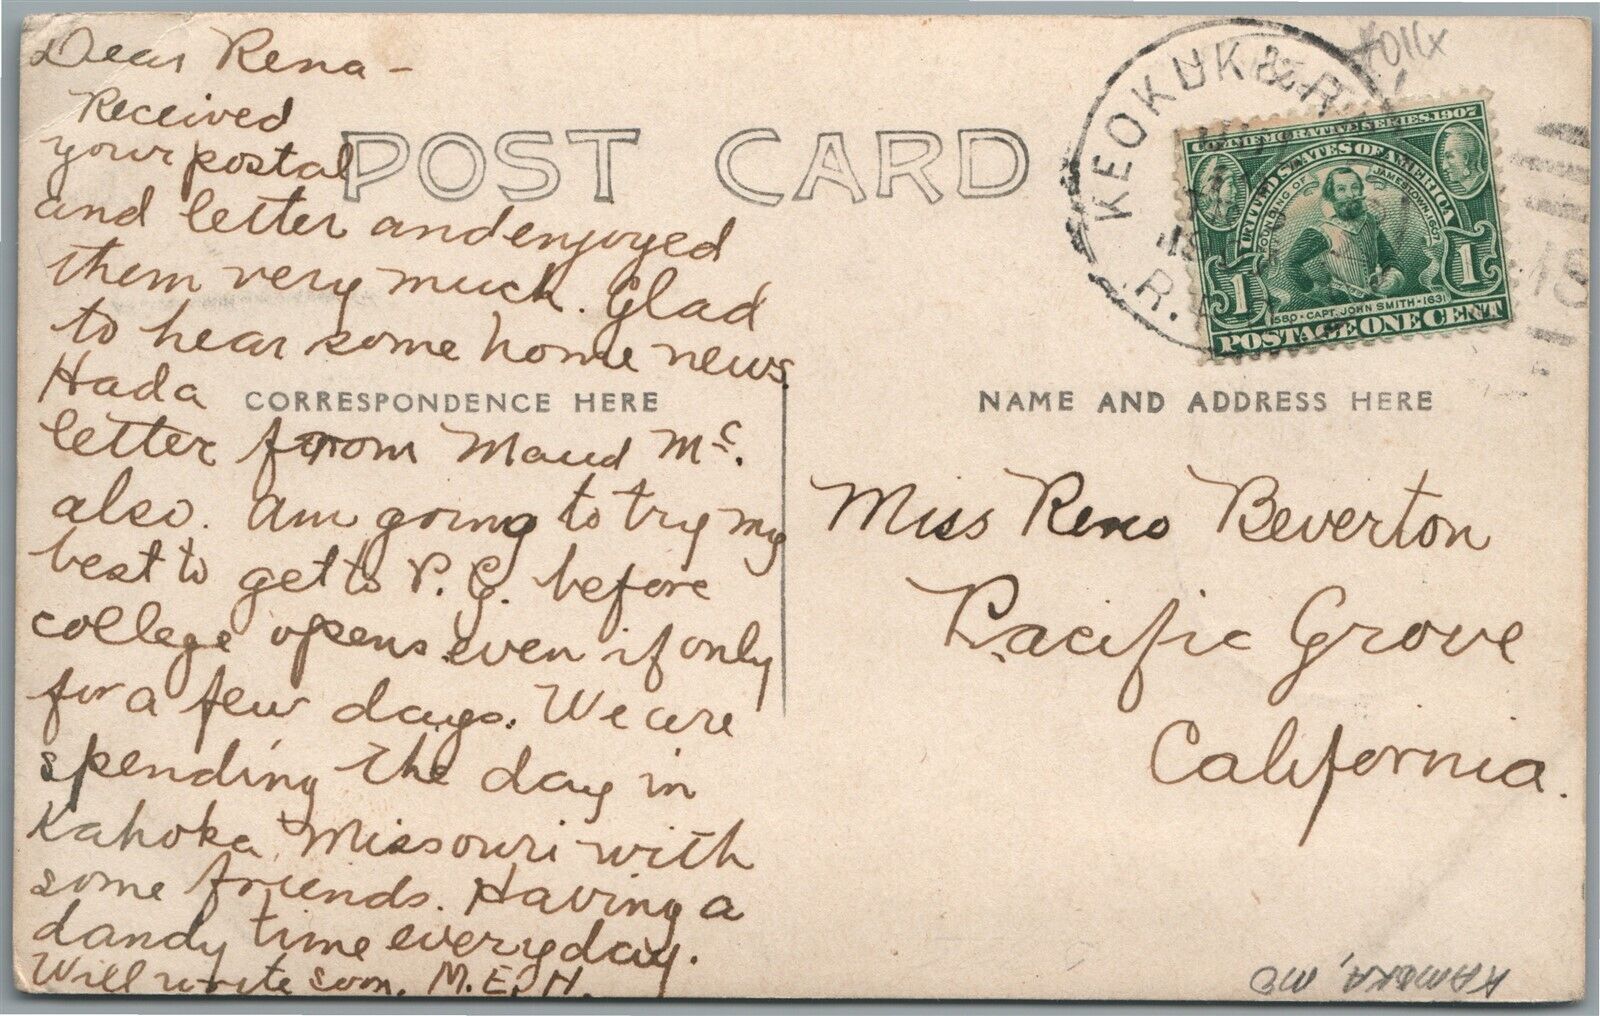 Dear Rena -
Received
your postal
and letter and enjoyed
them very much. Glad
to hear some home news.
Had a
letter from Maud Mc.
also. Am going to try my
best to get to P. G. before
college opens even if only
for a few days. We are
spending the day in
Kahoka, Missouri with
some friends. Having a
dandy time everyday.
Will write soon. M. E. H.
POST CARD
CORRESPONDENCE HERE
KEOKUK &
R.
COMMEMORATIVE SERIES, 1907
UNITED STATES OF AMERICA
FOUNDING OF JAMESTOWN, 1607
1580 · CAPT. JOHN SMITH · 1631
1 1
POSTAGE ONE CENT
NAME AND ADDRESS HERE
Miss Rena Beverton
Pacific Grove
California.